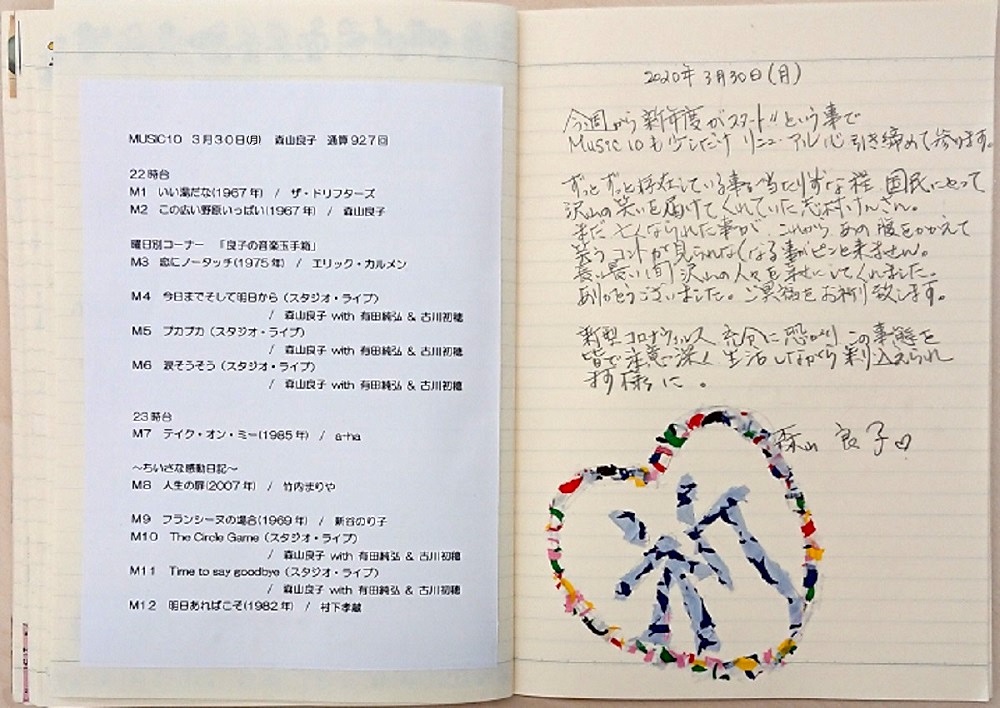 MUSIC10　3月30日(月)　森山良子　通算927回
22時台
M1　いい湯だな(1967年)　/　ザ・ドリフターズ
M2　この広い野原いっぱい(1967年)　/　森山良子
曜日別コーナー　「良子の音楽玉手箱」
M3　恋にノータッチ(1975年)　/　エリック・カルメン
M4　今日までそして明日から（スタジオ・ライブ）
/　森山良子 with 有田純弘 & 古川初穂
M5　プカプカ（スタジオ・ライブ）
/　森山良子 with 有田純弘 & 古川初穂
M6　涙そうそう（スタジオ・ライブ）
/　森山良子 with 有田純弘 & 古川初穂
23時台
M7　テイク・オン・ミー(1985年)　/　a-ha
～ちいさな感動日記～
M8　人生の扉(2007年)　/　竹内まりや
M9　フランシーヌの場合(1969年)　/　新谷のり子
M10　The Circle Game（スタジオ・ライブ）
/　森山良子 with 有田純弘 & 古川初穂
M11　Time to say goodbye（スタジオ・ライブ）
/　森山良子 with 有田純弘 & 古川初穂
M12　明日あればこそ(1982年)　/　村下孝蔵
2020年3月30日(月)
今週から新年度がスタート!!という事で
Music10も少しだけリニューアル 心引き締めて参ります。
ずっとずっと存在している事が当たりまえな程 国民にとって
沢山の笑いを届けてくれていた志村けんさん。
まだ亡くなられた事が、これから あの腹をかかえて
笑うコントが見られなくなる事がピンと来ません。
長い長い間 沢山の人々を幸せにしてくれました。
ありがとうございました。ご冥福をお祈り致します。
新型コロナウィルス 充分に恐がり この事態を
皆で注意深く生活しながら 乗り越えられ
ます様に。
森山良子♡